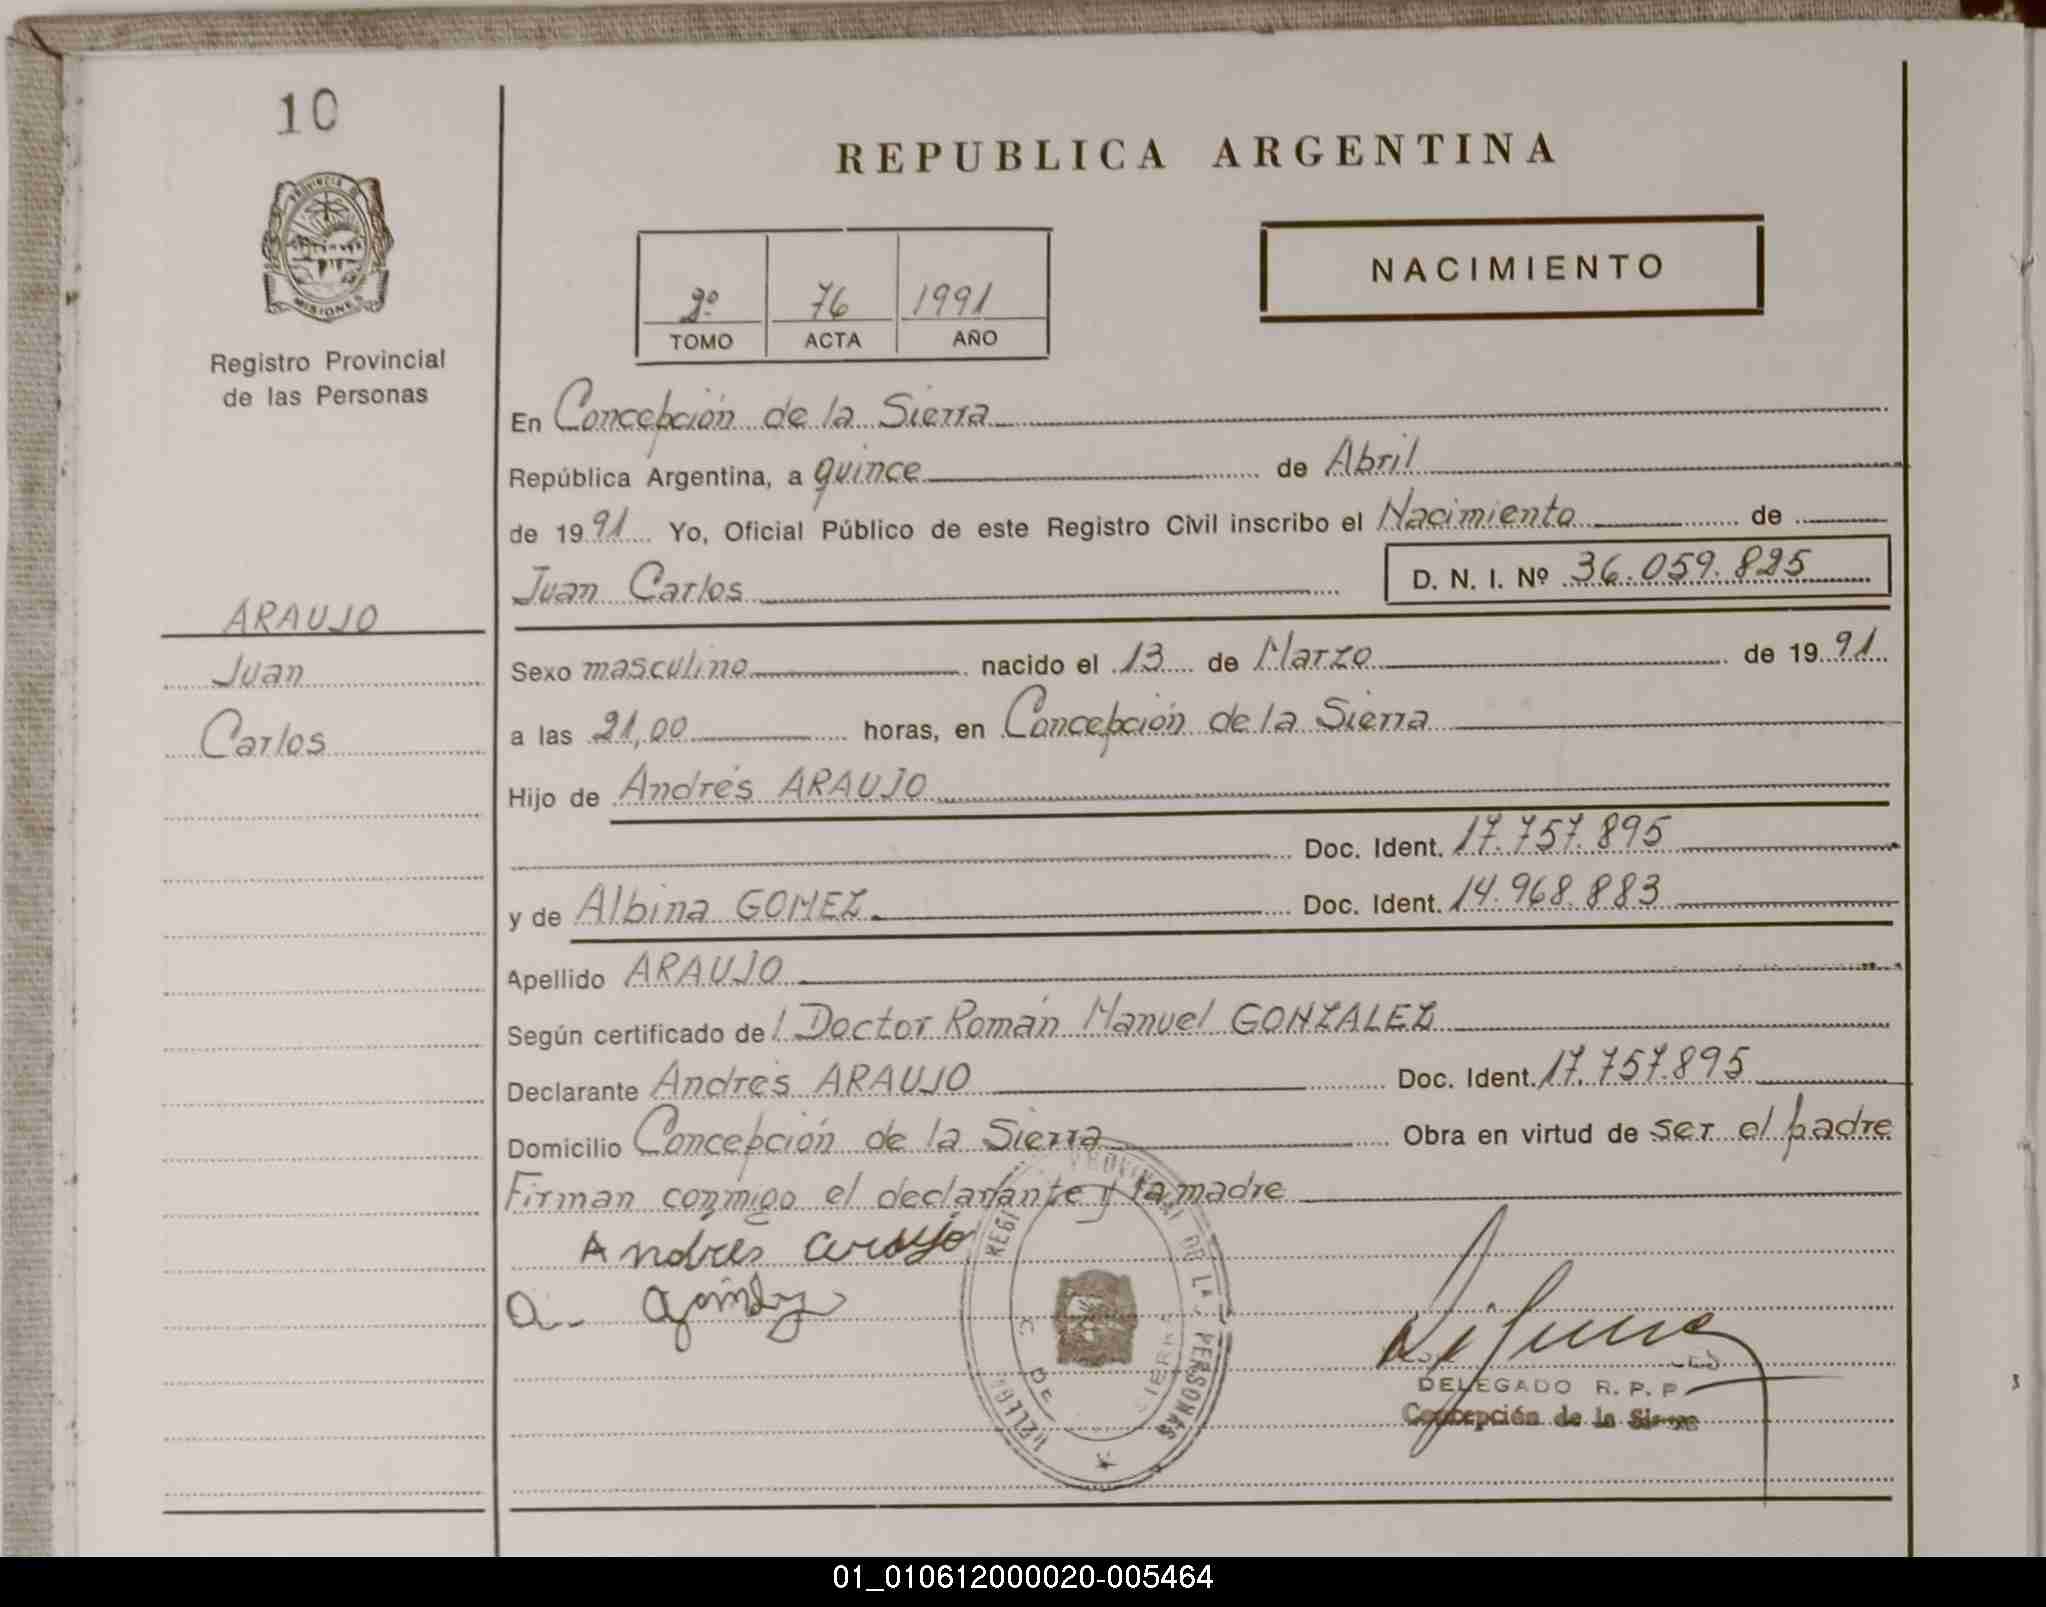 10
REPUBLICA ARGENTINA
PROVINCIA DE
MISIONES
NACIMIENTO
2º 76 1991
TOMO ACTA AÑO
Registro Provincial
de las Personas
En Concepción de la Sierra
República Argentina, a quince de Abril
de 1991 Yo, Oficial Público de este Registro Civil inscribo el Nacimiento de
Juan Carlos D. N. I. Nº 36.059.825
ARAUJO
Juan
Carlos
Sexo masculino nacido el 13 de Marzo de 1991
a las 21,00 horas, en Concepción de la Sierra
Hijo de Andrés ARAUJO
Doc. Ident. 17.757.895
y de Albina GOMEZ Doc. Ident. 14.968.883
Apellido ARAUJO
Según certificado del Doctor Román Manuel GONZALEZ
Declarante Andrés ARAUJO Doc. Ident. 17.757.895
Domicilio Concepción de la Sierra Obra en virtud de ser el padre
Firman conmigo el declarante y la madre
Andres araujo
DELEGADO R. P. P.
Concepción de la Sierra
01_010612000020-005464